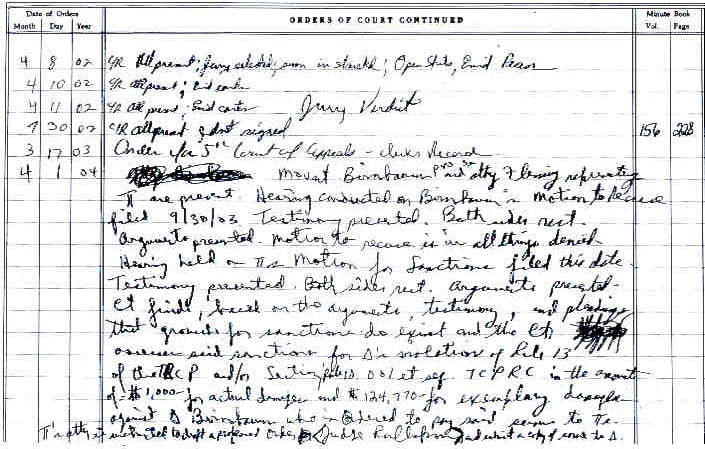 Date of Orders
Month Day Year
ORDERS OF COURT CONTINUED
Minute Book
Vol. Page
4 8 02 C/R All present; Jury selected; sworn in started; Open Stats,
4 10 02 C/R all present;
4 11 02 C/R all present; Jury Verdict
7 30 02 C/R all present & signed 156 228
3 17 03 Order 5th Court of Appeals - Clerks Record
4 1 04 Birnbaum and atty Fleming representing
π are present. Hearing conducted on Birnbaum's Motion to Recuse
filed 9/30/03. Testimony presented. Both sides rest.
Arguments presented. Motion to recuse is in all things denied.
Hearing held on π's Motion for Sanctions filed this date.
Testimony presented. Both sides rest. Arguments presented.
Ct finds, based on the arguments, testimony, and pleadings
that grounds for sanctions do exist and the Ct.
assesses said sanctions for Δ's violation of Rule 13
of the TRCP and/or Section 10.001 et seq. TCPRC in the amount
of $1,000- for actual damages and $124,770- for exemplary damages
against Δ Birnbaum who is ordered to pay said sums to π.
π's atty is instructed to draft a proposed Order Judge and submit a copy of same to Δ.